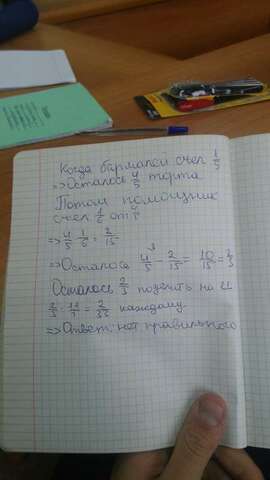 Когда бармалей съел 1/5
=> Осталось 4/5 торта
Потом помощник
съел 1/6 от 4/5
=> 4/5 · 1/6 = 2/15
=> Осталось 4/5 - 2/15 = 10/15 = 2/3
Осталось 2/3 поделить на
= 2/33 каждому
=> Ответ: нет правильного